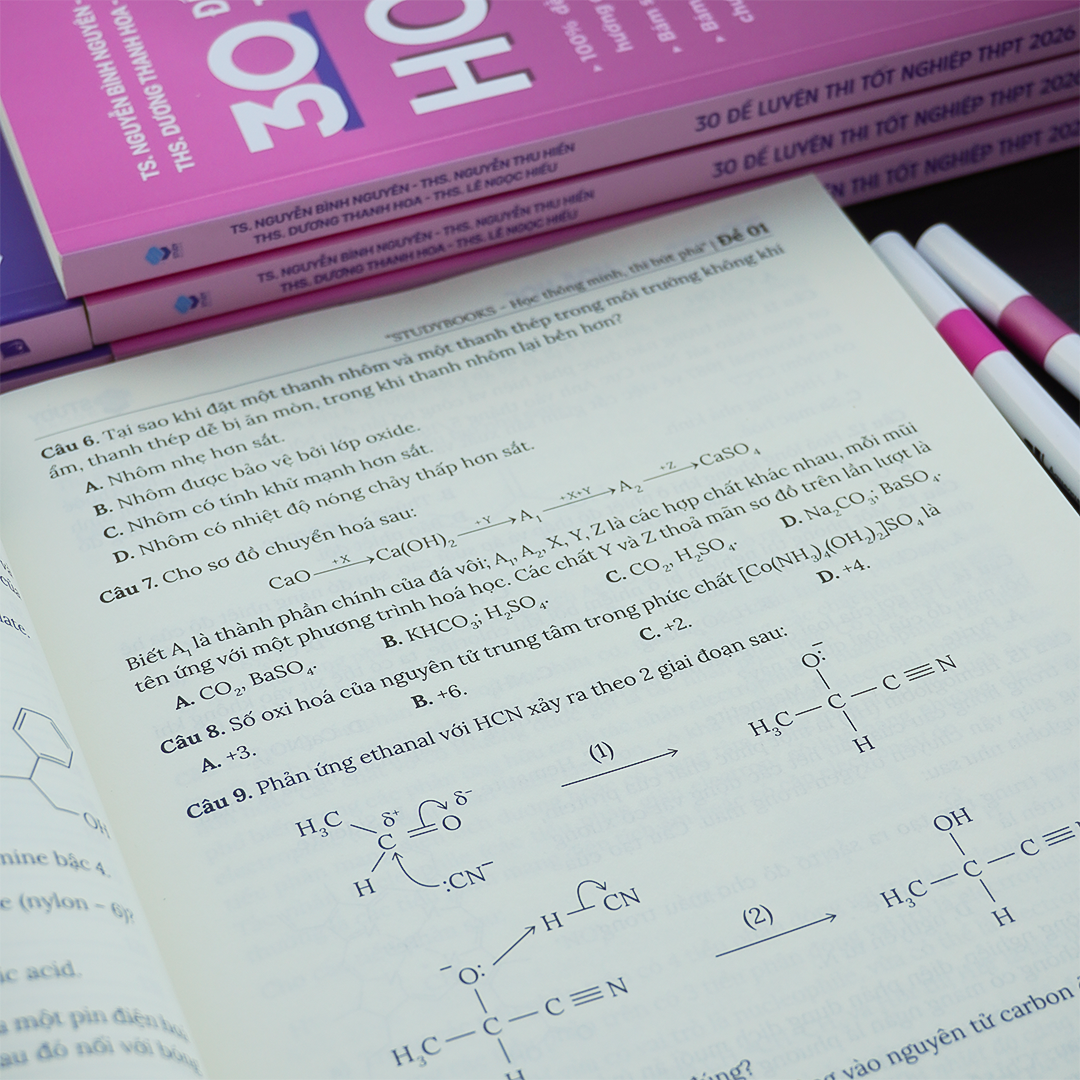 TS. NGUYỄN BÌNH NGUYÊN -
THS. DƯƠNG THANH HOA -
30
100% đề
hướng
Bám s
Bám
TS. NGUYỄN BÌNH NGUYÊN - THS. NGUYỄN THU HIỀN
THS. DƯƠNG THANH HOA - THS. LÊ NGỌC HIẾU
30 ĐỀ LUYỆN THI TỐT NGHIỆP THPT 2026
TS. NGUYỄN BÌNH NGUYÊN - THS. NGUYỄN THU HIỀN
THS. DƯƠNG THANH HOA - THS. LÊ NGỌC HIẾU
30 ĐỀ LUYỆN THI TỐT NGHIỆP THPT 2026
THI TỐT NGHIỆP THPT
"STUDYBOOKS – Học thông minh, thi bứt phá" | Đề 01
Câu 6. Tại sao khi đặt một thanh nhôm và một thanh thép trong môi trường không khí
ẩm, thanh thép dễ bị ăn mòn, trong khi thanh nhôm lại bền hơn?
A. Nhôm nhẹ hơn sắt.
B. Nhôm được bảo vệ bởi lớp oxide.
C. Nhôm có tính khử mạnh hơn sắt.
D. Nhôm có nhiệt độ nóng chảy thấp hơn sắt.
Câu 7. Cho sơ đồ chuyển hoá sau:
CaO —+X→ Ca(OH)₂ —+Y→ A₁ —+X+Y→ A₂ —+Z→ CaSO₄
Biết A₁ là thành phần chính của đá vôi; A₁, A₂, X, Y, Z là các hợp chất khác nhau, mỗi mũi
tên ứng với một phương trình hoá học. Các chất Y và Z thoả mãn sơ đồ trên lần lượt là
A. CO₂, BaSO₄. B. KHCO₃; H₂SO₄. C. CO₂, H₂SO₄. D. Na₂CO₃; BaSO₄.
Câu 8. Số oxi hoá của nguyên tử trung tâm trong phức chất [Co(NH₃)₄(OH₂)₂]SO₄ là
A. +3. B. +6. C. +2. D. +4.
Câu 9. Phản ứng ethanal với HCN xảy ra theo 2 giai đoạn sau:
H₃C C δ⁺ O δ⁻ H :CN⁻
(1)
O:⁻ H₃C — C — C≡N H
H — CN
⁻O: H₃C — C — C≡N H
(2)
OH H₃C — C — C≡N H
vào nguyên tử carbon
OH
mine bậc 4.
(nylon – 6)?
ic acid.
một pin điện
au đó nối với bóng